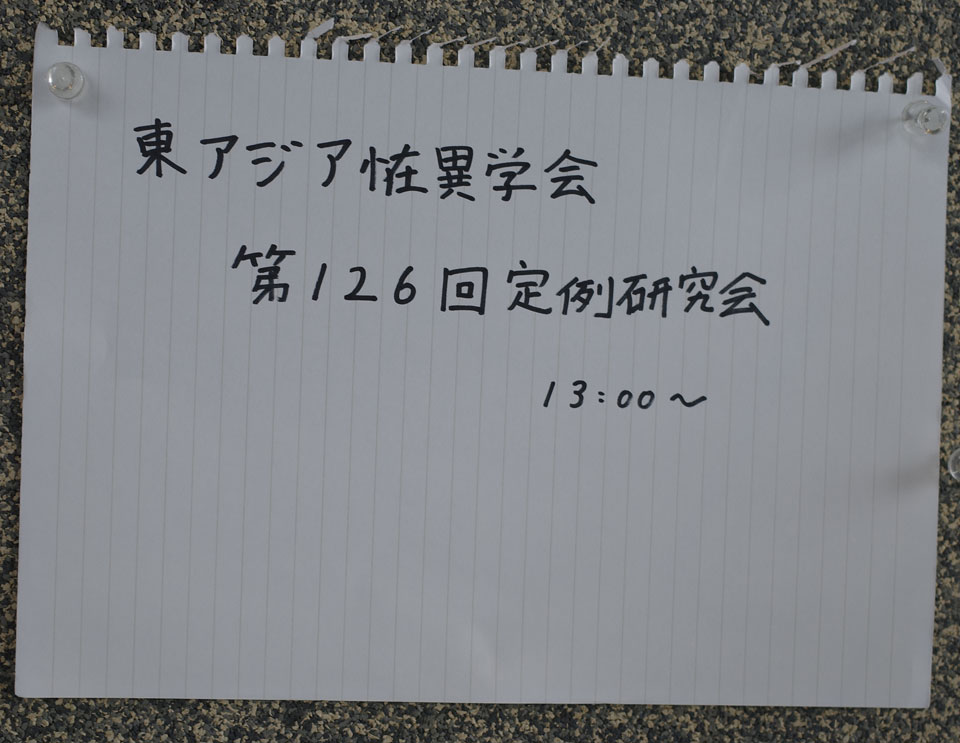 東アジア恠異学会
第126回定例研究会
13:00～